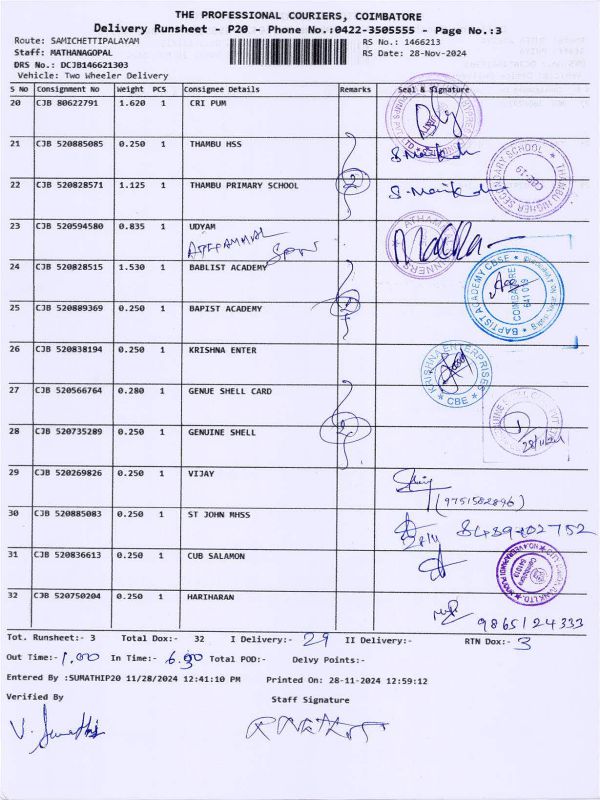 THE PROFESSIONAL COURIERS, COIMBATORE
Delivery Runsheet - P20 - Phone No.:0422-3505555 - Page No.:3
Route: SAMICHETTIPALAYAM RS No.: 1466213
Staff: MATHANAGOPAL RS Date: 28-Nov-2024
DRS No.: DCJB146621303
Vehicle: Two Wheeler Delivery
S No Consignment No Weight PCS Consignee Details Remarks Seal & Signature
20 CJB 80622791 1.620 1 CRI PUM
21 CJB 520885085 0.250 1 THAMBU HSS
THAMBU HIGHER SECONDARY SCHOOL
CBE-19
22 CJB 520828571 1.125 1 THAMBU PRIMARY SCHOOL 2
23 CJB 520594580 0.835 1 UDYAM
24 CJB 520828515 1.530 1 BABLIST ACADEMY
BAPTIST ACADEMY CBSE
COIMBATORE
641 019
25 CJB 520889369 0.250 1 BAPIST ACADEMY
26 CJB 520838194 0.250 1 KRISHNA ENTER
KRISHNA ENTERPRISES
CBE
27 CJB 520566764 0.280 1 GENUE SHELL CARD
28 CJB 520735289 0.250 1 GENUINE SHELL 2
28/11/24
29 CJB 520269826 0.250 1 VIJAY
(9751582896)
30 CJB 520885083 0.250 1 ST JOHN MHSS
8489202752
31 CJB 520836613 0.250 1 CUB SALAMON
32 CJB 520750204 0.250 1 HARIHARAN
9865124333
Tot. Runsheet:- 3 Total Dox:- 32 I Delivery:- 29 II Delivery:- RTN Dox:- 3
Out Time:- 1.00 In Time:- 6.30 Total POD:- Delvy Points:-
Entered By :SUMATHIP20 11/28/2024 12:41:10 PM Printed On: 28-11-2024 12:59:12
Verified By Staff Signature